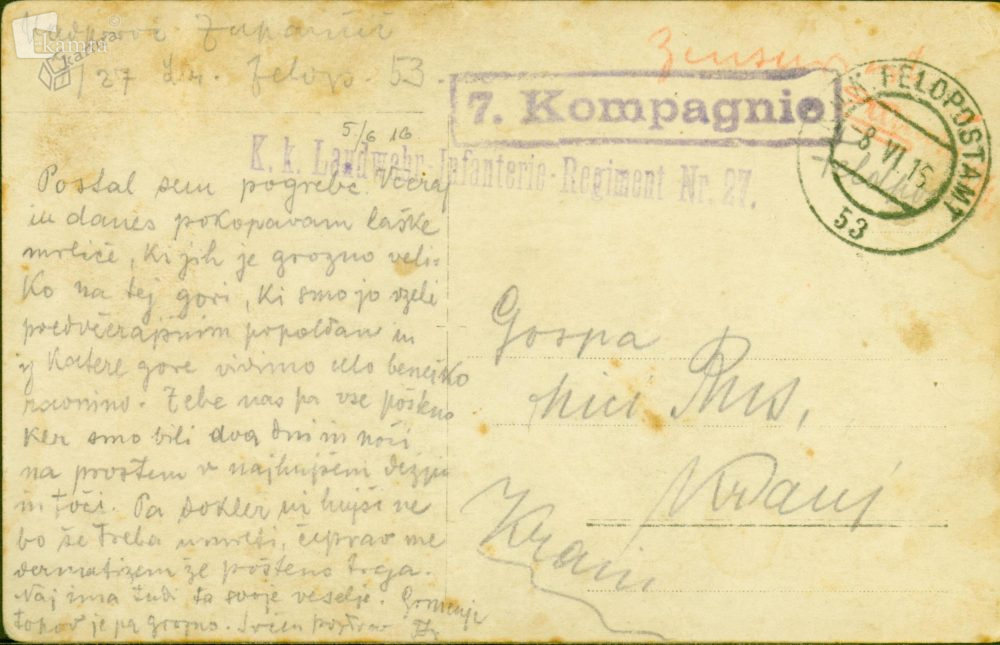 Zupančič
/27 Lir. feldp. 53.
Zensur
7. Kompagnie
K. k. Landwehr-Infanterie-Regiment Nr. 27.
K. FELDPOSTAMT
8 VI. 16
53
5/6 16
Postal sem pogrebc. Včeraj
in danes pokopavam laške
mrliče, ki jih je grozno veli-
ko na tej gori, ki smo jo vzeli
predvčerajšnim popoldan in
iz katere gore vidimo celo benečko
ravnino. Zebe nas pa vse pošteno
ker smo bili dva dni in noči
na prostem v najhujšem dežju
in toči. Pa dokler ni hujši ne
bo še treba umreti, čeprav me
dermatizem že pošteno trga.
Naj ima tudi ta svoje veselje. Grmenje
topov je pa grozno. Srčen pozdrav
Gospa
Mici
Kranj
Krain